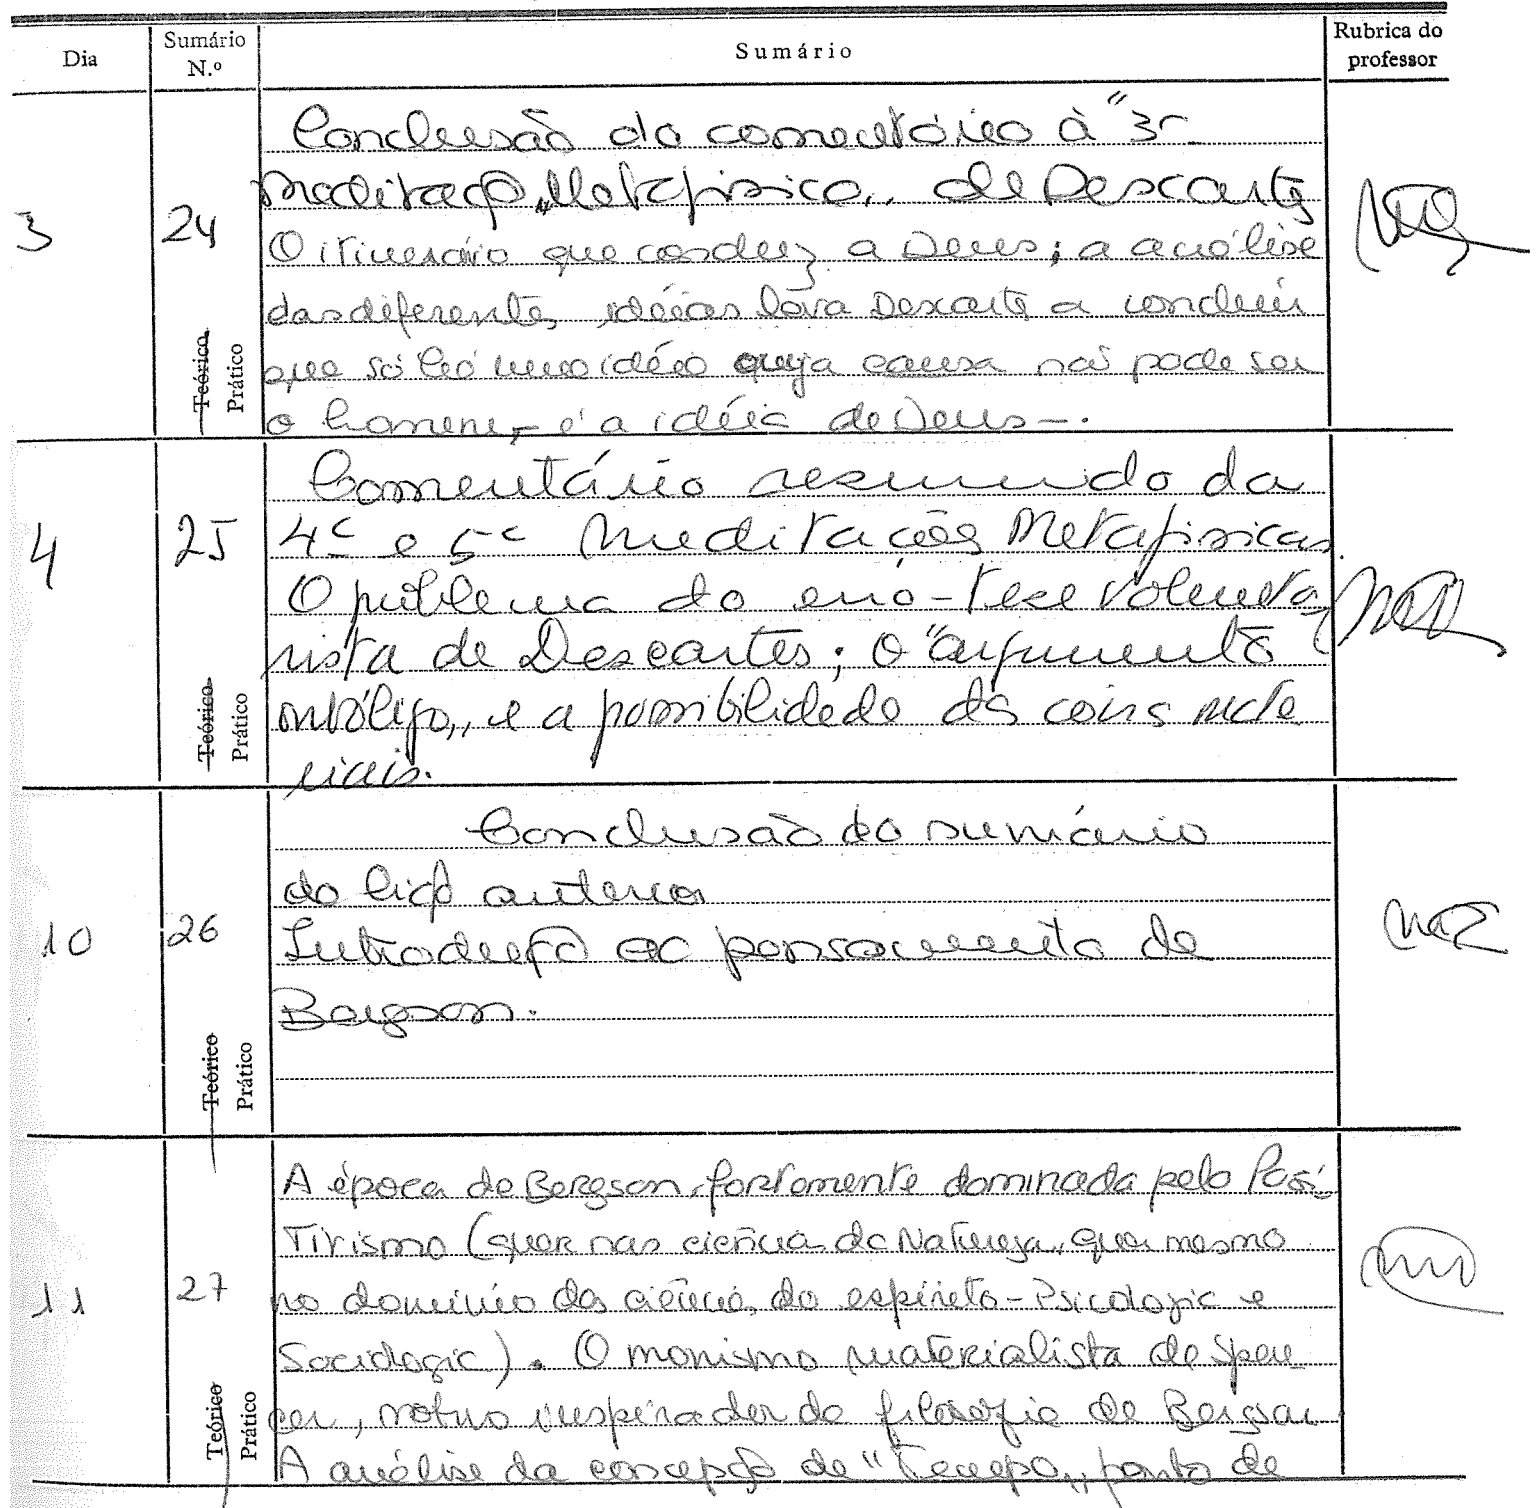 Dia
Sumário
N.º
Sumário
Rubrica do
professor
3
24
Teórico
Prático
Conclusão do comentário à "3ª
Meditação Metafísica„ de Descartes
O itinerário que conduz a Deus; a análise
das diferentes idéias leva Descartes a concluir
que só há uma idéia cuja causa não pode ser
o homem, – é a idéia de Deus –.
4
25
Teórico
Prático
Comentário resumido da
4ª e 5ª Meditações Metafísicas.
O problema do erro – tese volunta
rista de Descartes; o "argumento
ontológico„ e a possibilidade das coisas mate
riais.
10
26
Teórico
Prático
Conclusão do sumário
da lição anterior
Introdução ao pensamento de
Bergson.
11
27
Teórico
Prático
A época de Bergson, fortemente dominada pelo Posi-
tivismo (quer nas ciências da Natureza, quer mesmo
no domínio das ciências do espírito – Psicologia e
Sociologia). O monismo materialista de Spen
cer, motivo inspirador da filosofia de Bergson
A análise da concepção de "Tempo„, ponto de